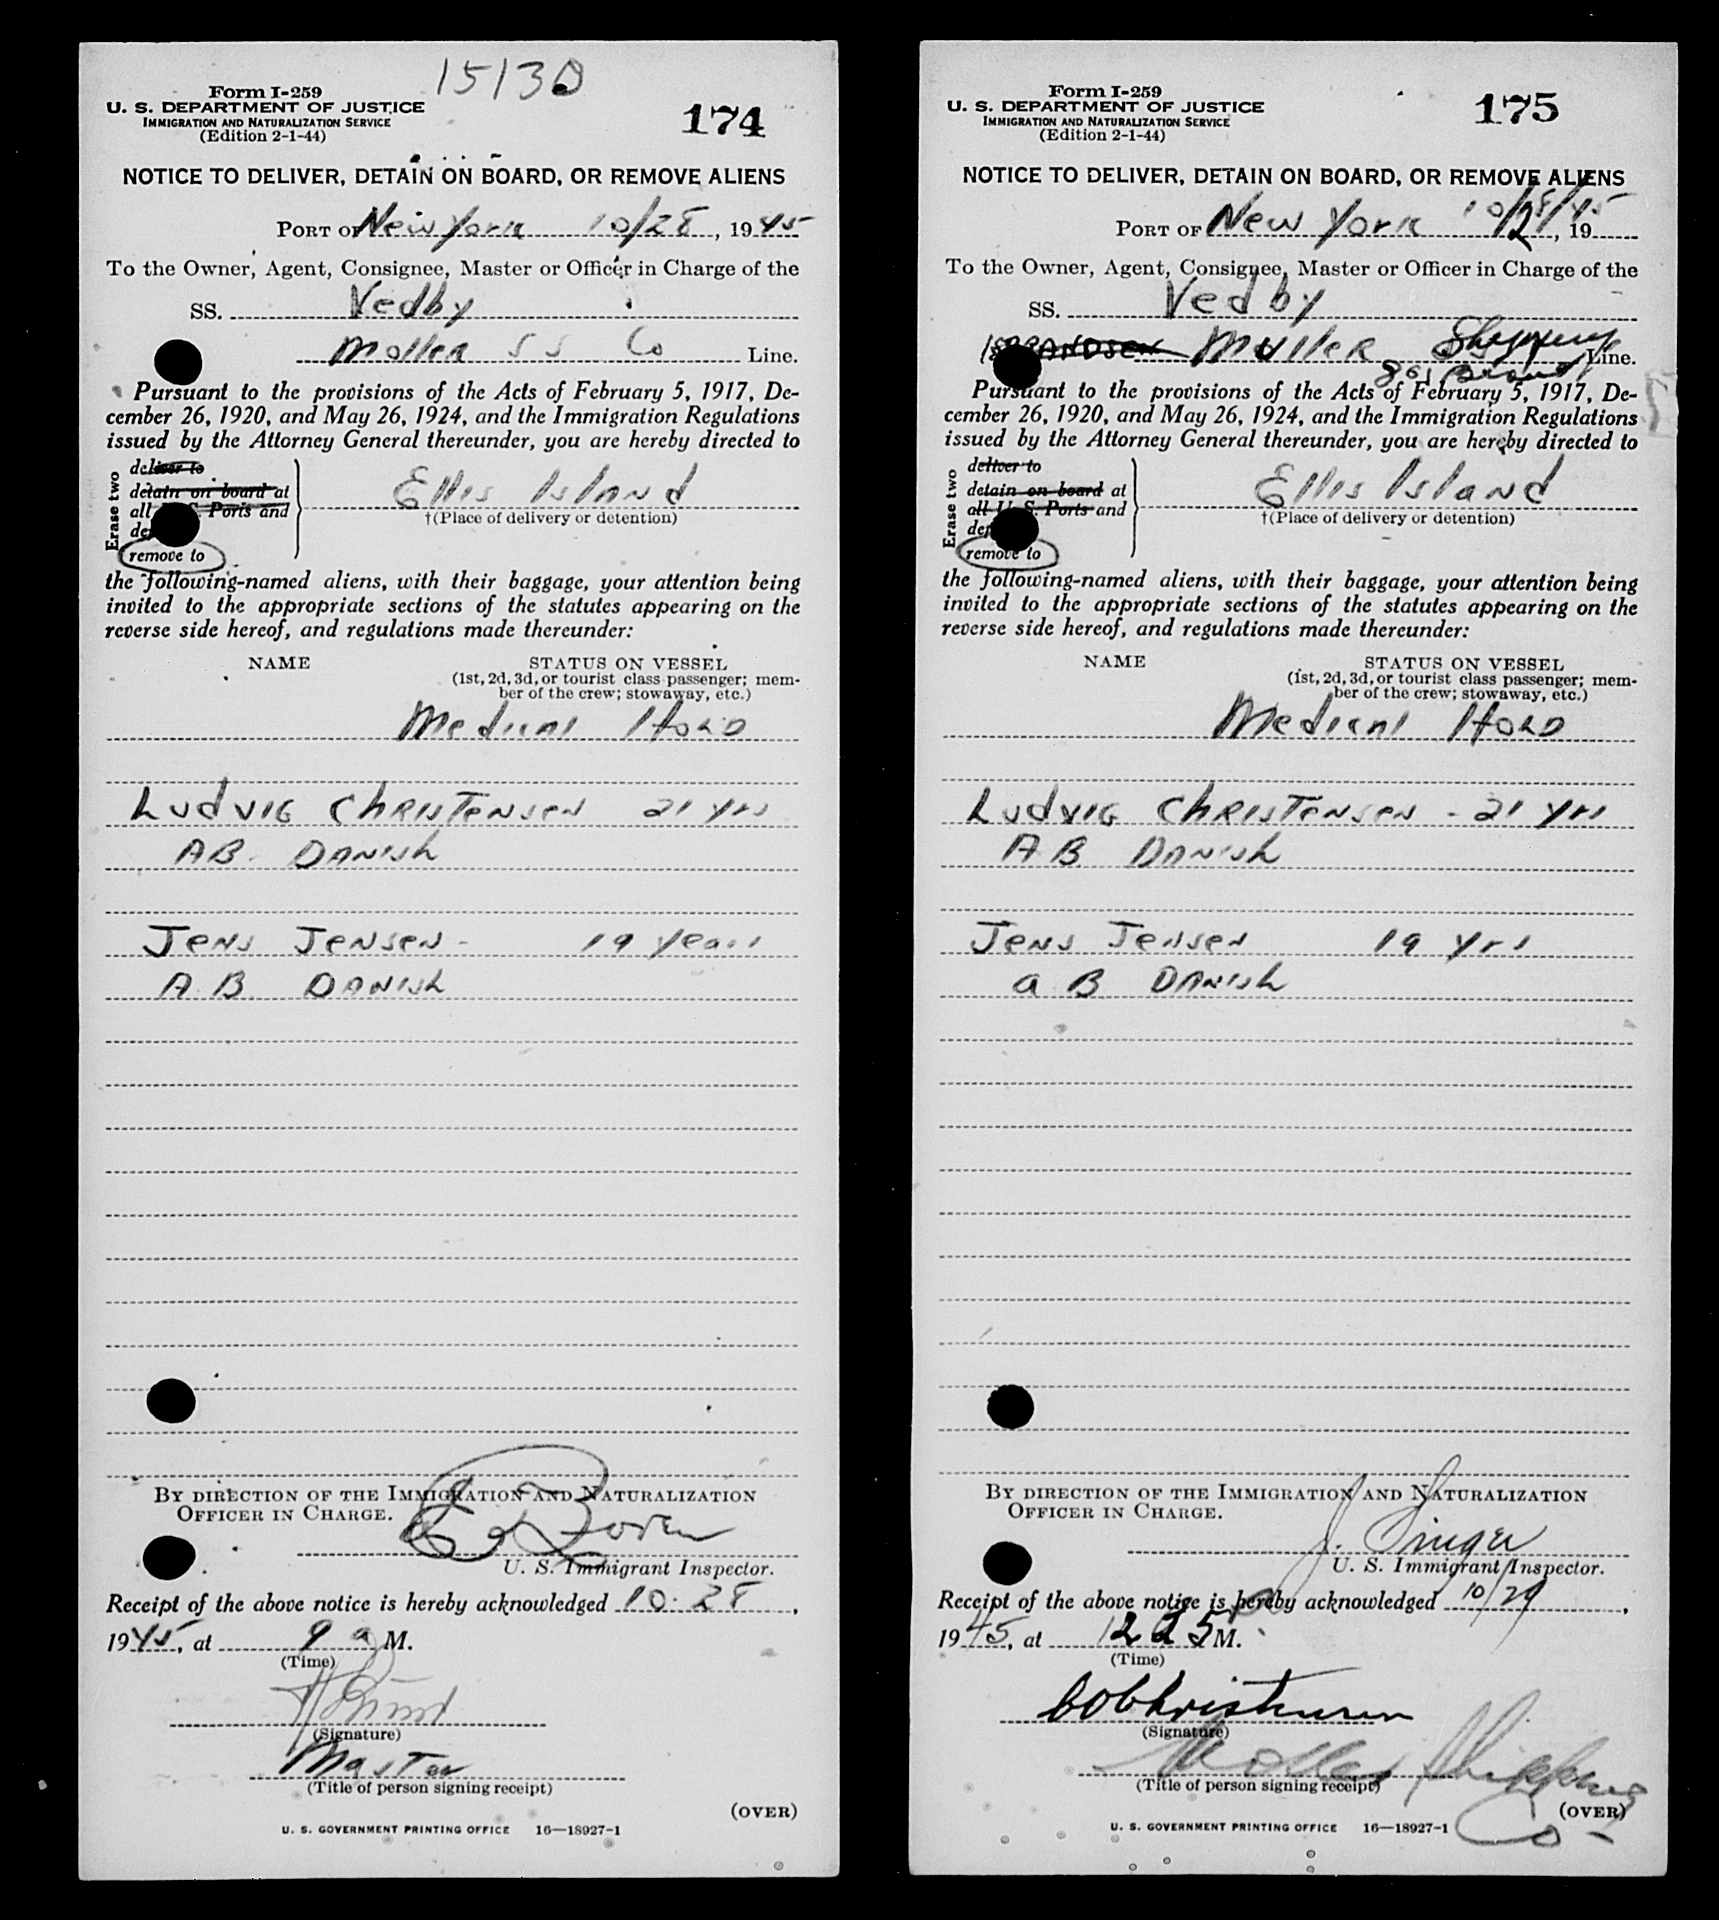 15130
Form I-259
U. S. DEPARTMENT OF JUSTICE
IMMIGRATION AND NATURALIZATION SERVICE
(Edition 2-1-44)
174
NOTICE TO DELIVER, DETAIN ON BOARD, OR REMOVE ALIENS
PORT OF New York 10/28, 1945
To the Owner, Agent, Consignee, Master or Officer in Charge of the
SS. Vedby
Moller SS Co Line.
Pursuant to the provisions of the Acts of February 5, 1917, De-
cember 26, 1920, and May 26, 1924, and the Immigration Regulations
issued by the Attorney General thereunder, you are hereby directed to
Erase two
deliver to
detain on board at
all Ports and
remove to
Ellis Island
†(Place of delivery or detention)
the following-named aliens, with their baggage, your attention being
invited to the appropriate sections of the statutes appearing on the
reverse side hereof, and regulations made thereunder:
NAME STATUS ON VESSEL
(1st, 2d, 3d, or tourist class passenger; mem-
ber of the crew; stowaway, etc.)
Medical Hold
Ludvig Christensen 21 yrs
AB. Danish
Jens Jensen - 19 years
A.B. Danish
BY DIRECTION OF THE IMMIGRATION AND NATURALIZATION
OFFICER IN CHARGE.
U. S. Immigrant Inspector.
Receipt of the above notice is hereby acknowledged 10-28,
1945, at 9 a M.
(Time)
(Signature)
Master
(Title of person signing receipt)
(OVER)
U. S. GOVERNMENT PRINTING OFFICE 16—18927-1
Form I-259
U. S. DEPARTMENT OF JUSTICE
IMMIGRATION AND NATURALIZATION SERVICE
(Edition 2-1-44)
175
NOTICE TO DELIVER, DETAIN ON BOARD, OR REMOVE ALIENS
PORT OF New York 10/28/45, 19
To the Owner, Agent, Consignee, Master or Officer in Charge of the
SS. Vedby
Moller Shipping Line.
Pursuant to the provisions of the Acts of February 5, 1917, De-
cember 26, 1920, and May 26, 1924, and the Immigration Regulations
issued by the Attorney General thereunder, you are hereby directed to
Erase two
deliver to
detain on board at
all U. S. Ports and
remove to
Ellis Island
†(Place of delivery or detention)
the following-named aliens, with their baggage, your attention being
invited to the appropriate sections of the statutes appearing on the
reverse side hereof, and regulations made thereunder:
NAME STATUS ON VESSEL
(1st, 2d, 3d, or tourist class passenger; mem-
ber of the crew; stowaway, etc.)
Medical Hold
Ludvig Christensen - 21 yrs
A B. Danish
Jens Jensen 19 yrs
a B Danish
BY DIRECTION OF THE IMMIGRATION AND NATURALIZATION
OFFICER IN CHARGE.
J. Singer
U. S. Immigrant Inspector.
Receipt of the above notice is hereby acknowledged 10/29,
1945, at 1225 M.
(Time)
(Signature)
Moller Shipping Co-
(Title of person signing receipt)
(OVER)
U. S. GOVERNMENT PRINTING OFFICE 16—18927-1